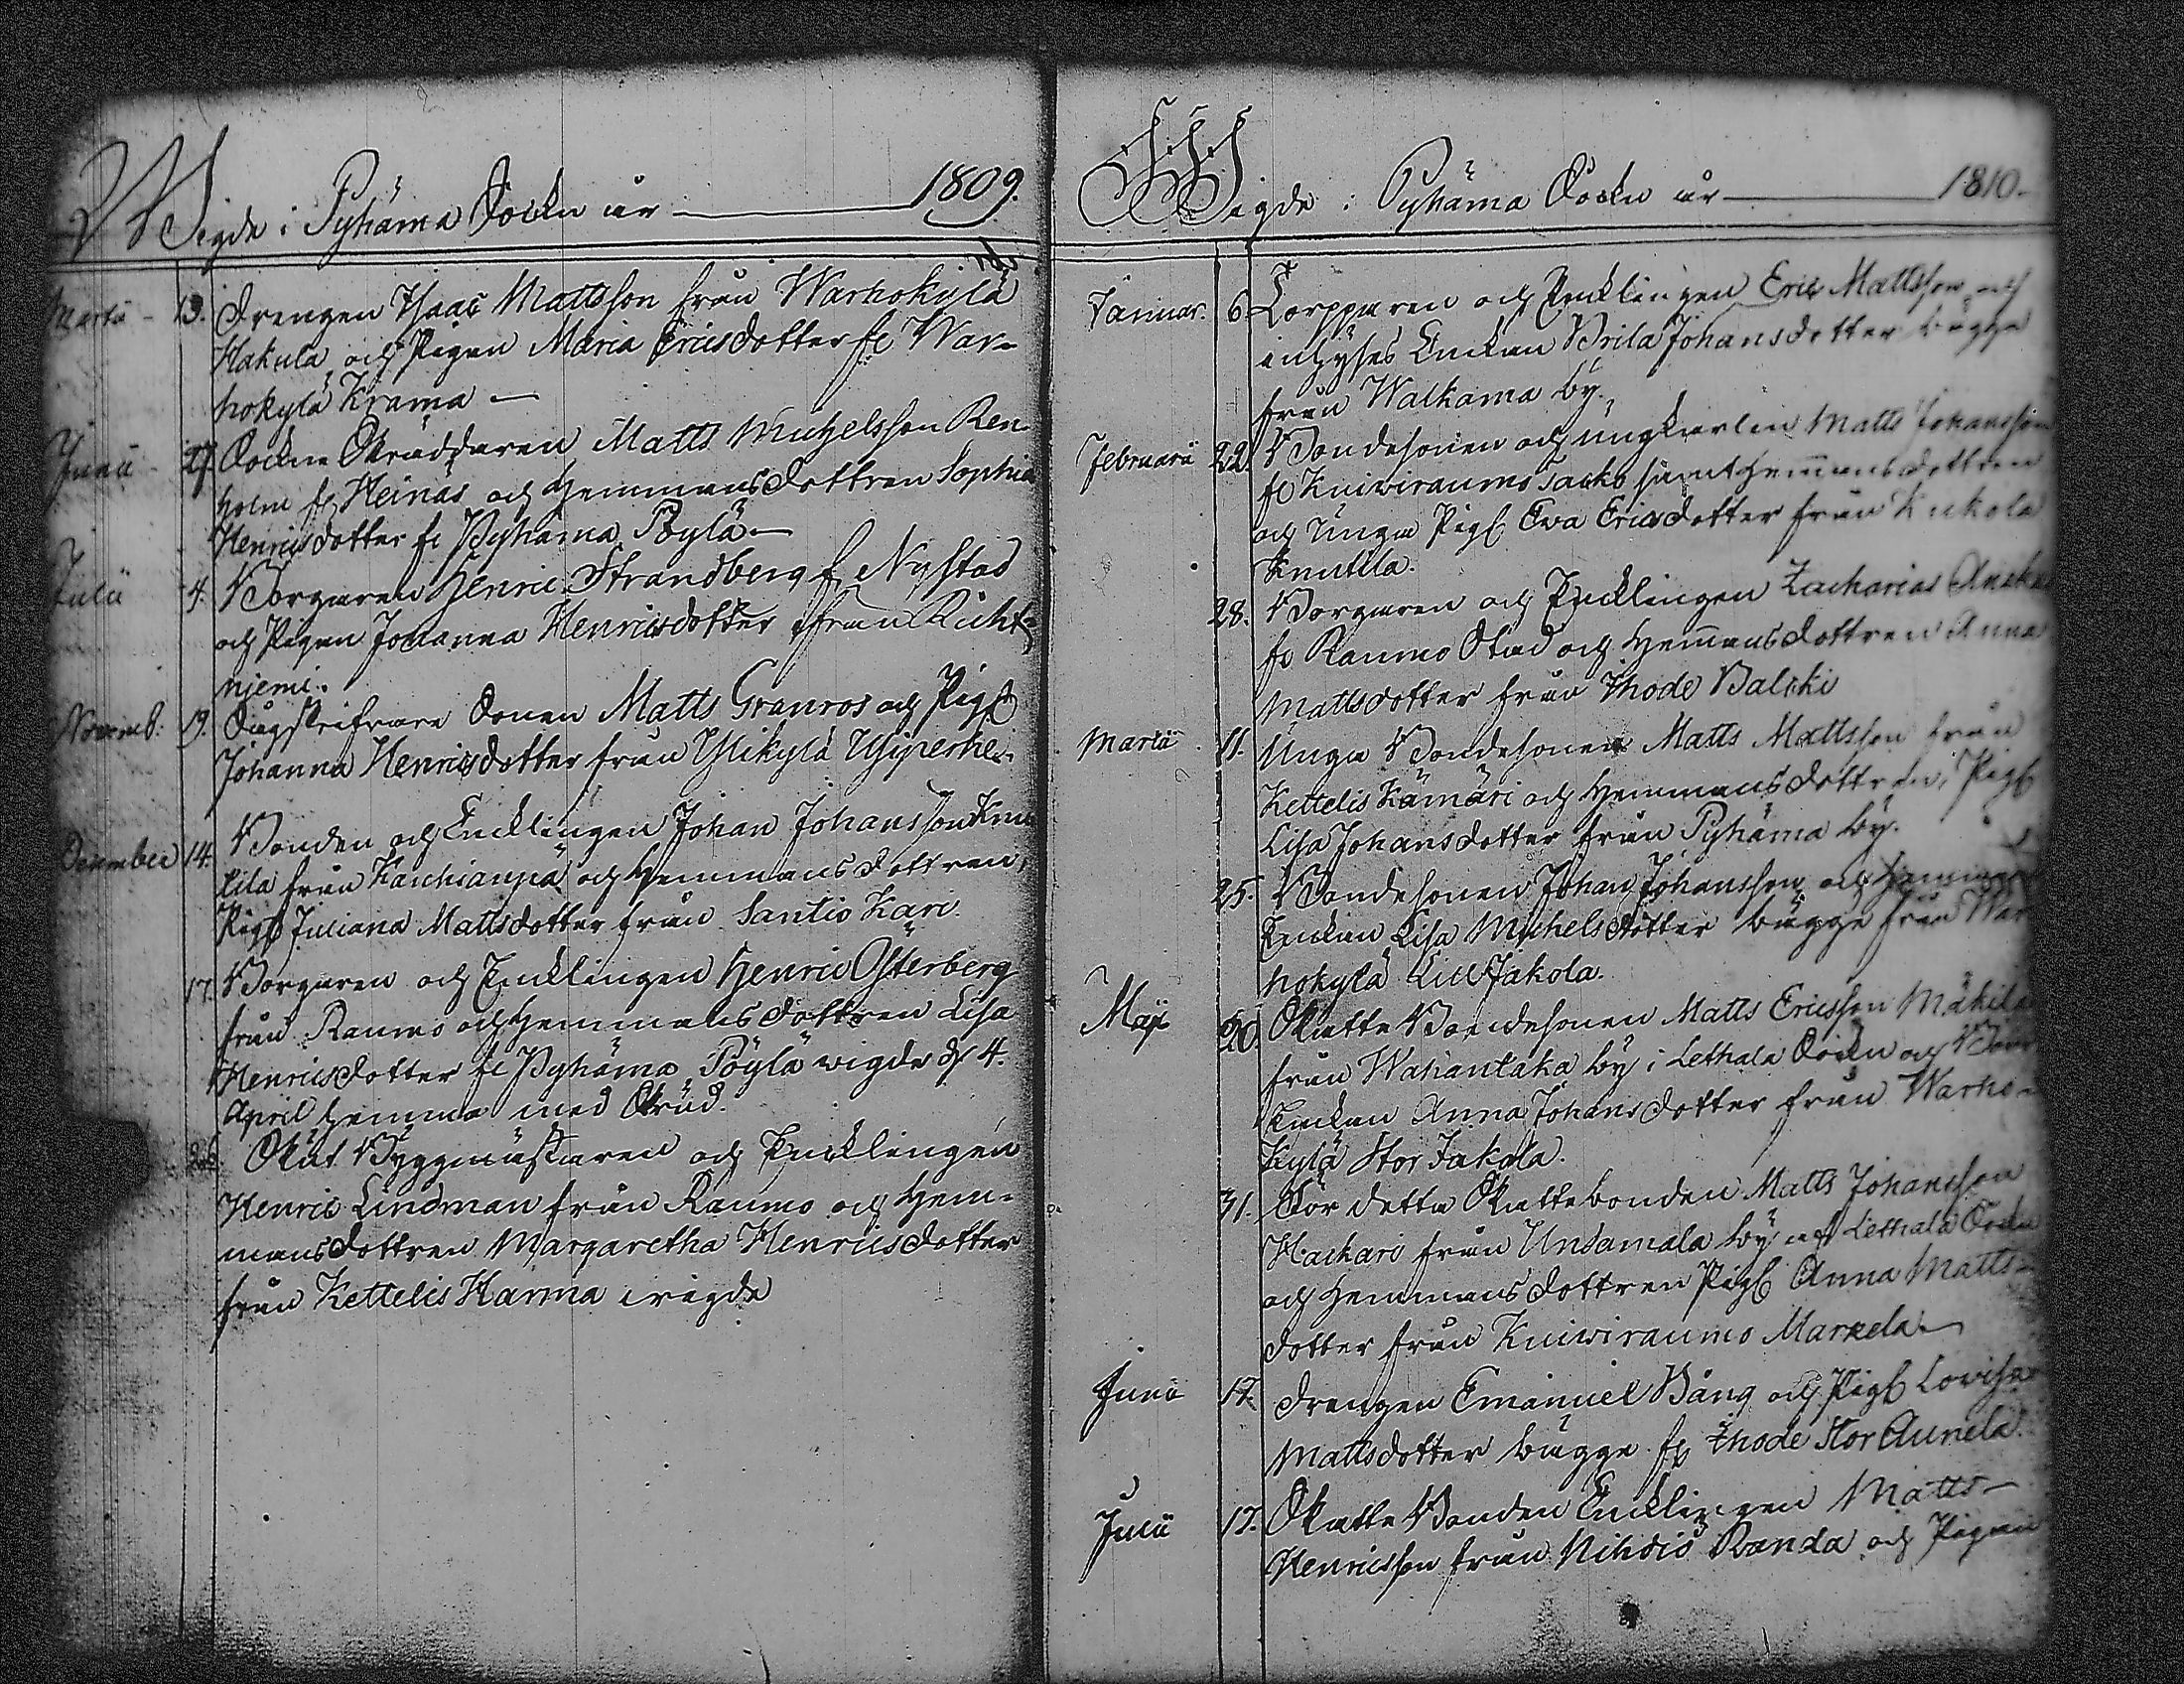 Wigde i Pyhäma Sockn år 1809.
Martii 13. Drengen Isaac Mattsson från Warhokylä
Hakula och Pigan Maria Ericsdotter fr War-
hokylä Krama
Junii 27. Sockne Skräddaren Matts Michelsson Ren-
holm fr Heinäs och Hemmansdottren Sophia
Henricsdotter fr Pyhäma Pöylä
Julii 4. Borgaren Henric Strandberg fr Nystad
och Pigan Johanna Henricsdotter från Richt-
niemi.
Novemb: 19. Matts Granroos och Pig:
Johanna Henricsdotter från Ylikylä
December 14. Bonden och Encklingen Johan Johansson Knu-
tila från och Hemmansdottren,
Pig: Juliana Mattsdotter från Santio Kari.
17. Borgaren och Encklingen Henric Österberg
från Raumo och Hemmansdottren Lisa
Henricsdotter fr Pyhäma Pöylä wigde d 4.
April hemma med Brud.
26. Skat. Byggmästaren och Encklingen
Henric Lindman från Raumo och Hem-
mansdottren Margaretha Henricsdotter
från Kettelis Harma wigde
Wigde i Pyhäma Sockn år 1810.
Januar. 6. Torpparen och Encklingen Eric Mattsson och
inhyses Enckan Brita Johansdotter bägge
från Walkama by.
Februarii 22. Bondesonen och ungkarlen Matts Johansson
fr Kuiwiraumo Jacko samt Hemmansdottren
och Unga Pig: Ewa Ericsdotter från Kukola
Knutila.
28. Borgaren och Encklingen Zacharias
fr Raumo Stad och Hemmansdottren Anna
Mattsdotter från Ihode Balcki
Martii 11. Unga Bondesonen Matts Mattsson från
Kettelis Kämäri och Hemmansdottren, Pig:
Lisa Johansdotter från Pyhäma by.
25. Bondesonen Johan Johansson och Hemmans
Enckan Lisa Michelsdotter bägge från War-
hokylä Lill Jakola.
Maji 20. Skatte Bondesonen Matts Ericsson Mäkilä
från Wahantaka by i Lethala Sockn och Bond
Enckan Anna Johansdotter från Warho-
kylä Stor Jakola.
31. För detta Skattebonden Matts Johansson
Hachari från Undamala by af Lethala Sockn
och Hemmansdottren Pig: Anna Matts-
dotter från Kuiwiraumo Markela.
Junii 17. Drengen Emanuel Bång och Pig: Lovisa
Mattsdotter bägge fr Ihode Stor Aunela.
Julii 17. Skatte Bonden Encklingen Matts
Henricsson från Nihdiö Randa och Pigan